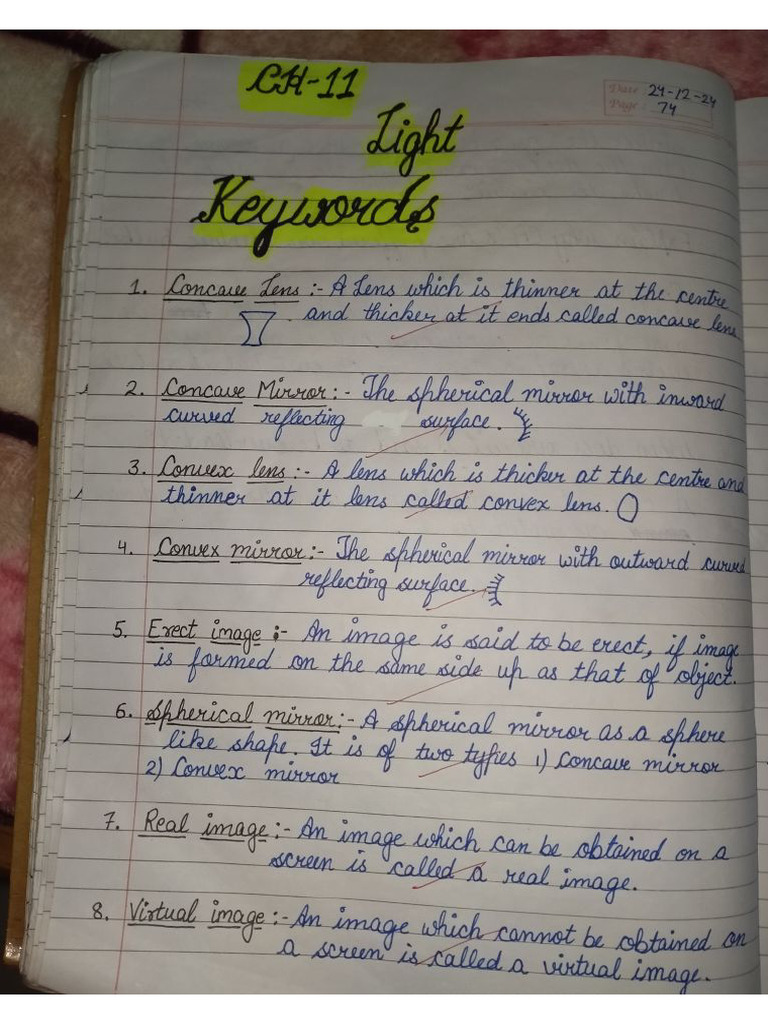 CH-11
Date: 24-12-24
Page: 74
Light
Keywords
1. Concave Lens :- A Lens which is thinner at the centre
and thicker at it ends called concave lens
2. Concave Mirror :- The spherical mirror with inward
curved reflecting surface.
3. Convex lens :- A lens which is thicker at the centre and
thinner at it lens called convex lens.
4. Convex mirror :- The spherical mirror with outward curved
reflecting surface.
5. Erect image :- An image is said to be erect, if image
is formed on the same side up as that of object.
6. Spherical mirror :- A spherical mirror as a sphere
like shape. It is of two types 1) Concave mirror
2) Convex mirror
7. Real image :- An image which can be obtained on a
screen is called a real image.
8. Virtual image :- An image which cannot be obtained on
a screen is called a virtual image.